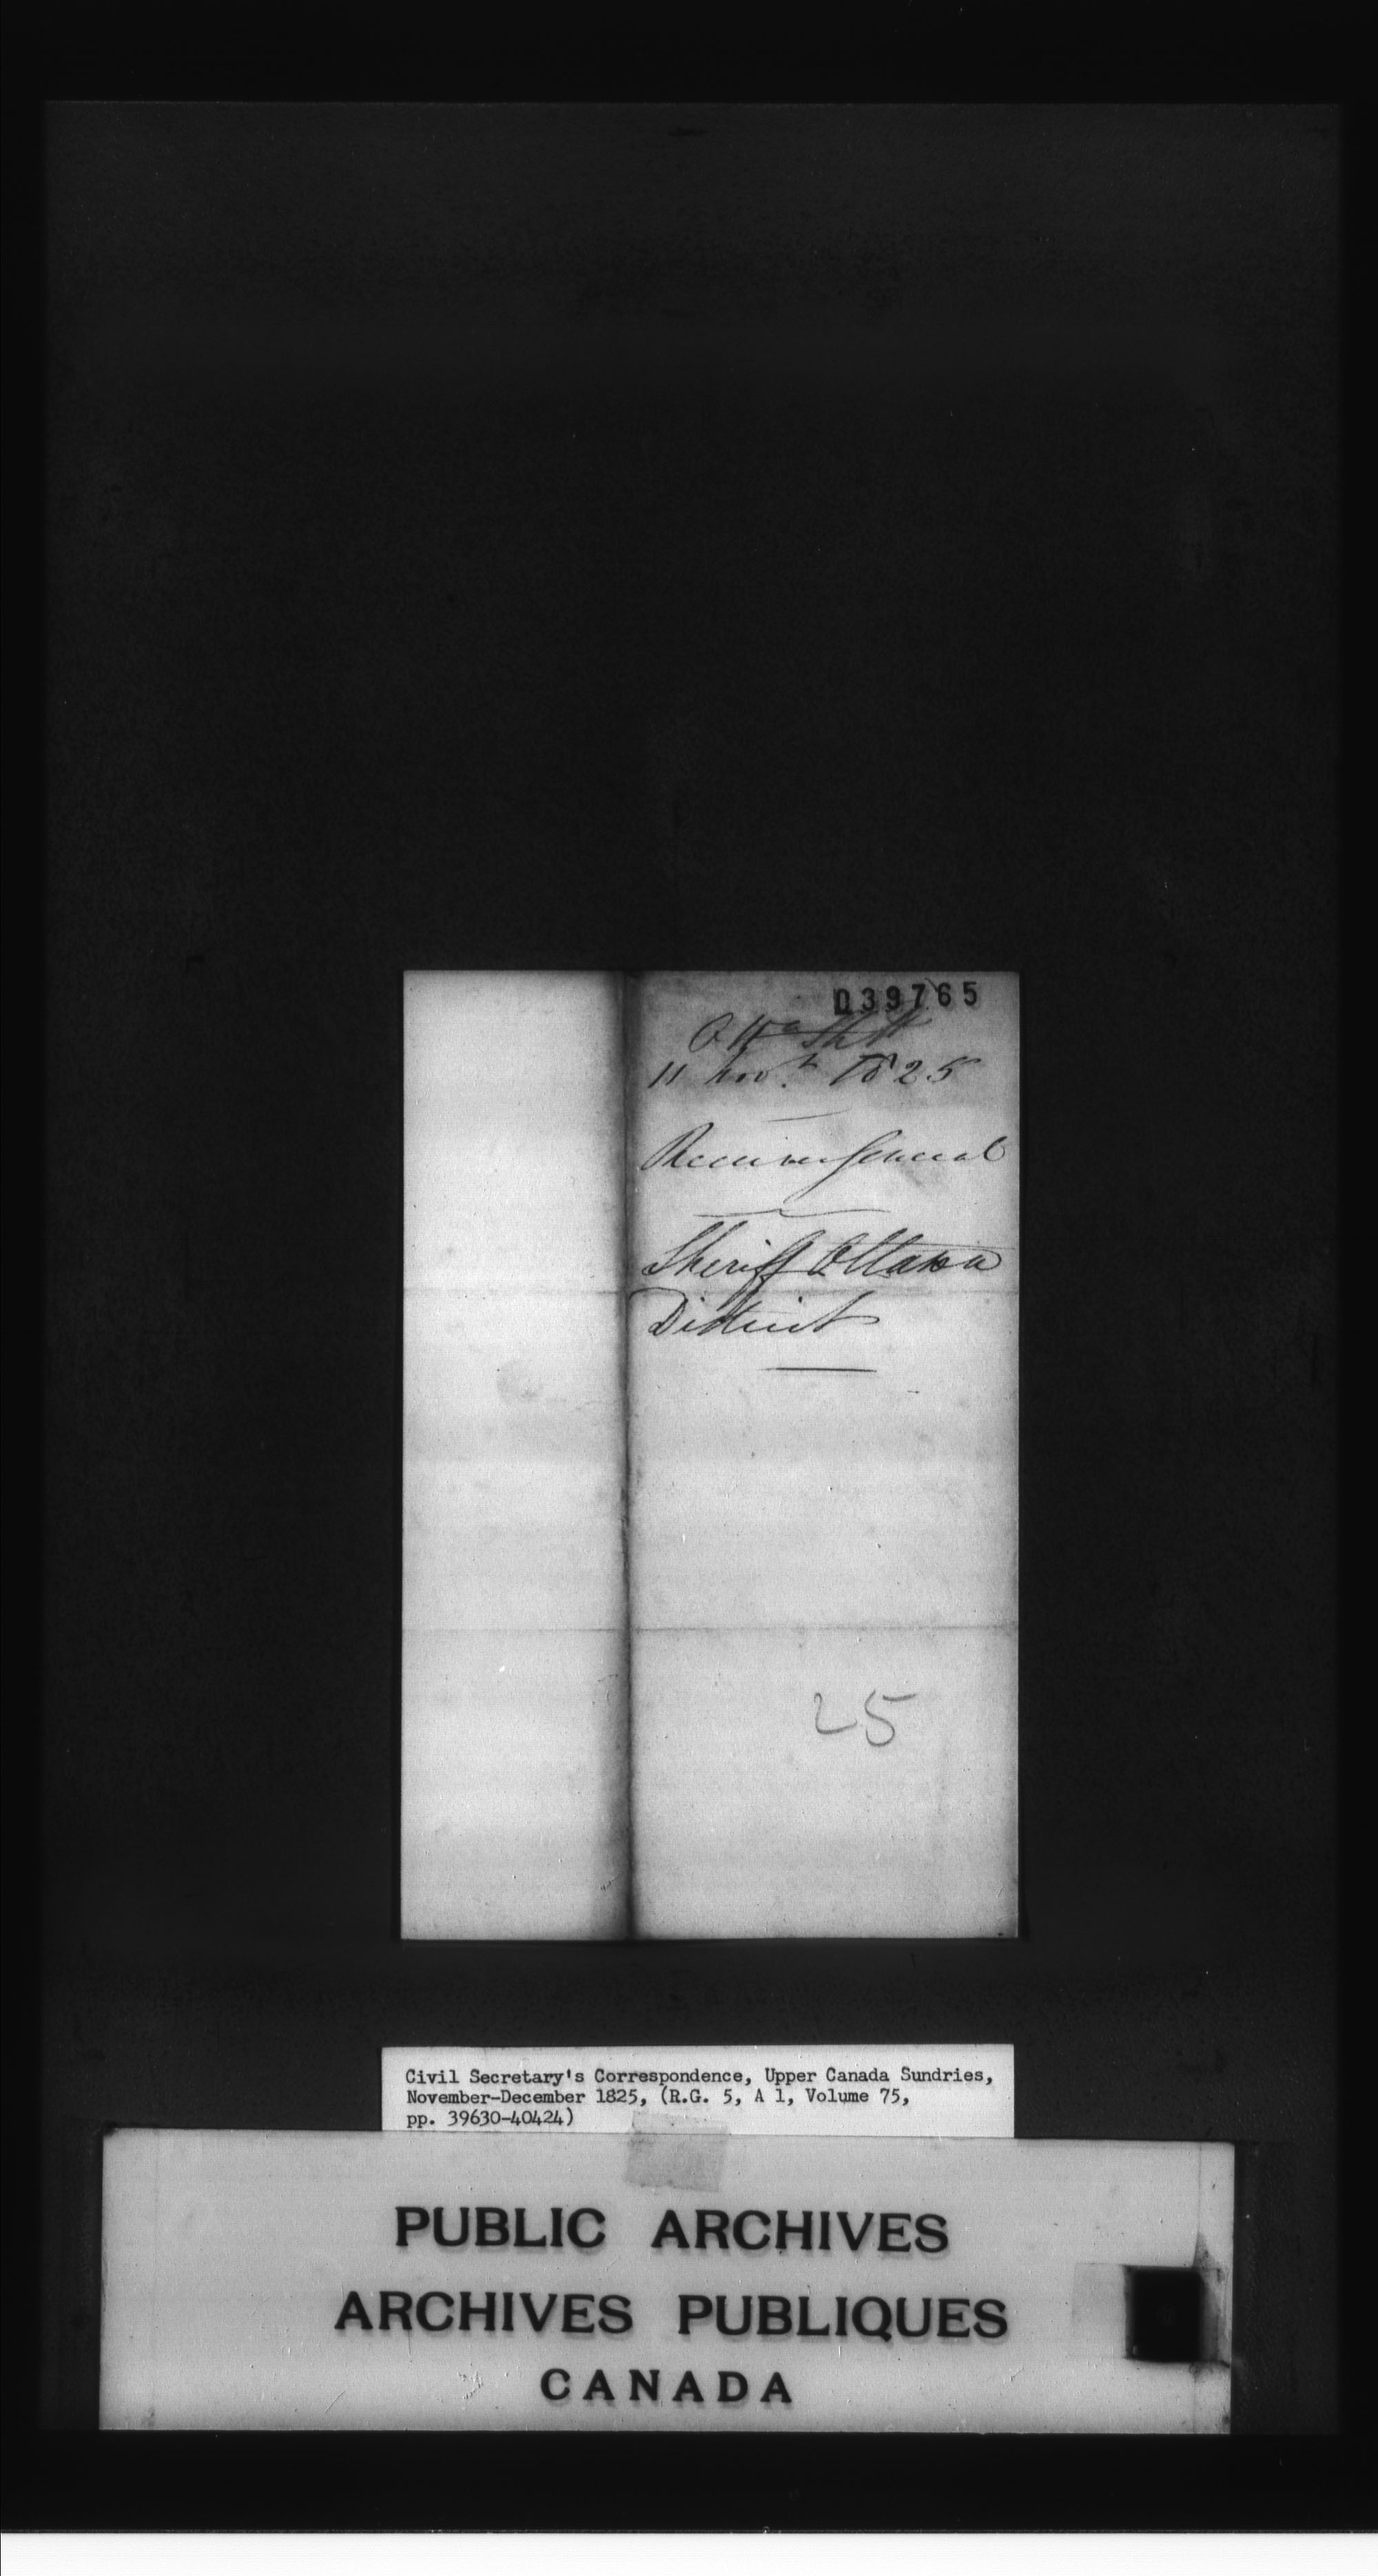 039765
11 Nov.r 1825
Receiver General
Sheriff Ottawa
District
25
Civil Secretary's Correspondence, Upper Canada Sundries,
November-December 1825, (R.G. 5, A 1, Volume 75,
pp. 39630-40424)
PUBLIC ARCHIVES
ARCHIVES PUBLIQUES
CANADA